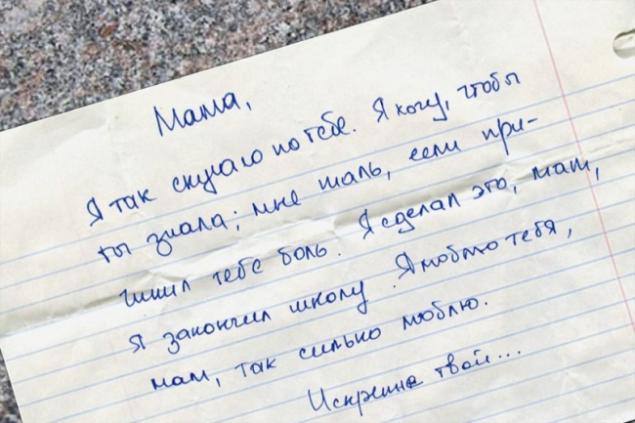 Мама,
Я так скучаю по тебе. Я хочу, чтобы
ты знала; мне жаль, если при-
чинил тебе боль. Я сделал это, мам,
я закончил школу. Я люблю тебя,
мам, так сильно люблю.
Искренне твой...